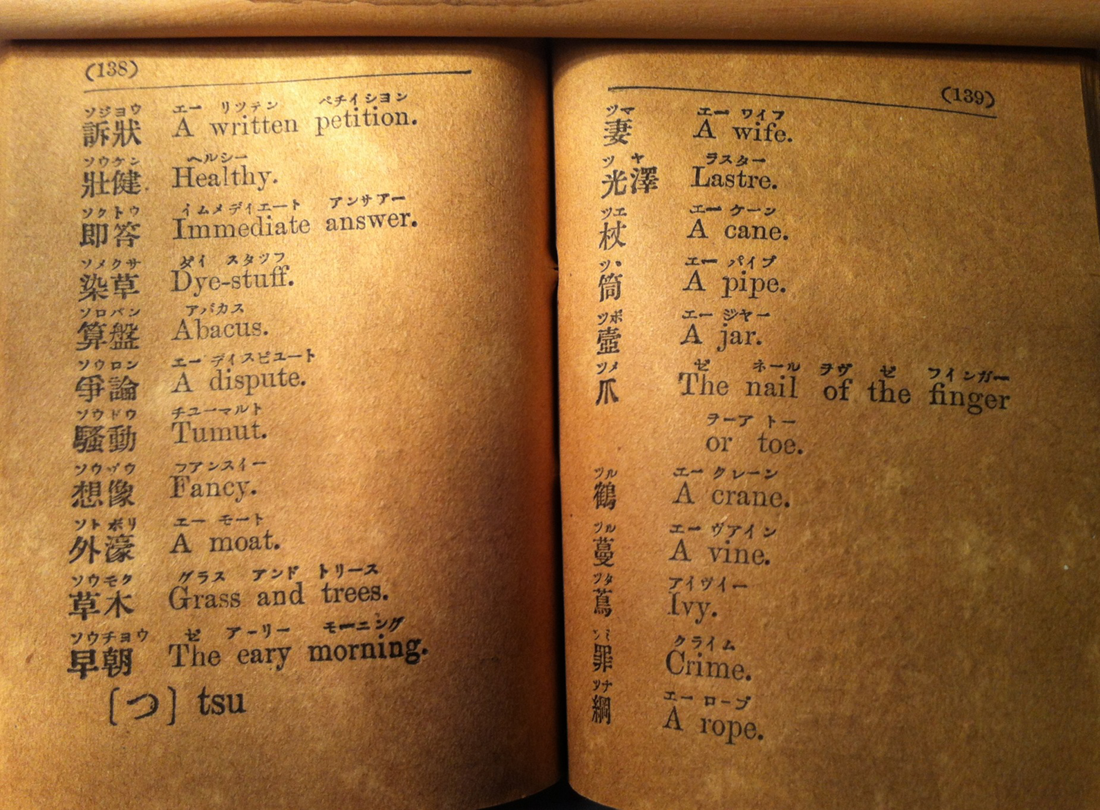 (138)
ソジョウ エー リツテン ペチイシヨン
訴狀 A written petition.
ソウケン ヘルシー
壯健 Healthy.
ソクトウ イムメデイエート アンサアー
即答 Immediate answer.
ソメクサ ダイ スタツフ
染草 Dye-stuff.
ソロバン アバカス
算盤 Abacus.
ソウロン エー デイスピユート
爭論 A dispute.
ソウドウ チユーマルト
騷動 Tumut.
ソウゾウ フアンスイー
想像 Fancy.
ソトボリ エー モート
外濠 A moat.
ソウモク グラス アンド トリース
草木 Grass and trees.
ソウチヨウ ゼ アーリー モーニング
早朝 The eary morning.
〔つ〕 tsu
(139)
ツマ エー ワイフ
妻 A wife.
ツヤ ラスター
光澤 Lastre.
ツエ エー ケーン
杖 A cane.
エー パイプ
筒 A pipe.
ツボ エー ジヤー
壺 A jar.
ツメ ゼ ネール ヲヴ ゼ フインガー
爪 The nail of the finger
ヲーア トー
or toe.
ツル エー クレーン
鶴 A crane.
ツル エー ヴアイン
蔓 A vine.
ツタ アイヴイー
蔦 Ivy.
ツミ クライム
罪 Crime.
ツナ エー ロープ
綱 A rope.